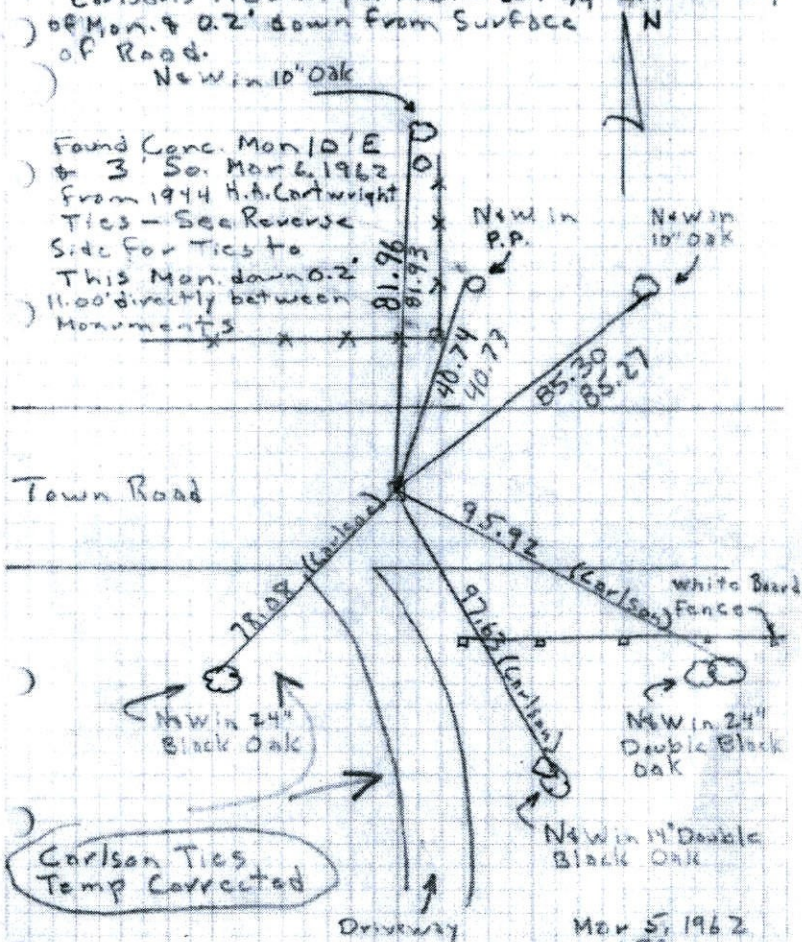 of Mon. & 0.2' down from Surface
of Road.
N
N&W in 10" Oak
Found Conc. Mon 10' E
& 3' So. Mar 6, 1962
from 1944 H.A. Cartwright
Ties - See Reverse
Side For Ties to
This Mon. down 0.2'
11.00' directly between
Monuments
N&W in
P.P.
N&W in
10" Oak
81.96
81.93
40.74
40.73
85.30
85.27
Town Road
78.08 (Carlson)
95.92 (Carlson)
97.63 (Carlson)
White Board
Fence
N&W in 24"
Black Oak
N&W in 24"
Double Black
Oak
N&W in 14" Double
Black Oak
Carlson Ties
Temp Corrected
Driveway
Mar 5, 1962